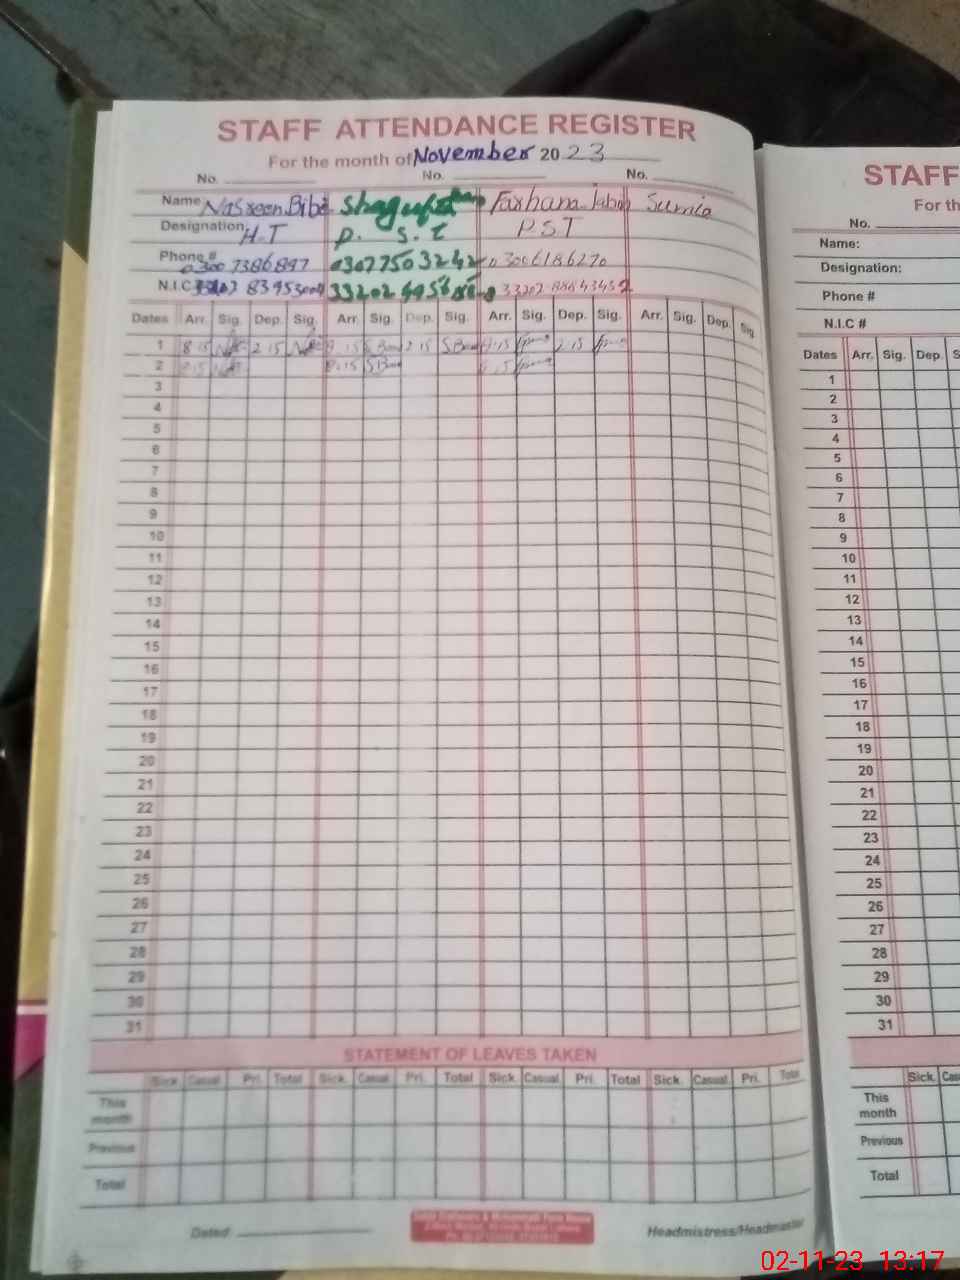 STAFF ATTENDANCE REGISTER
For the month of November 2023
No. No. No.
Name Nasreen Bibi Shagufta Farhana Sumia
Designation: H.T P.S.T P.S.T
Phone # 03007386897 03077503242 03006186270
N.I.C
Dates Arr. Sig. Dep. Sig. Arr. Sig. Dep. Sig. Arr. Sig. Dep. Sig. Arr. Sig. Dep. Sig.
1 8.15 2.15 8.15 2.15 8.15 2.15
2 8.15 8.15 8.15
3
4
5
6
7
8
9
10
11
12
13
14
15
16
17
18
19
20
21
22
23
24
25
26
27
28
29
30
31
STATEMENT OF LEAVES TAKEN
Sick. Casual. Pri. Total Sick. Casual. Pri. Total Sick. Casual. Pri. Total Sick. Casual. Pri. Total
This
month
Previous
Total
Dated: Headmistress/Headmaster
STAFF
For th
No.
Name:
Designation:
Phone #
N.I.C #
Dates Arr. Sig. Dep. S
1
2
3
4
5
6
7
8
9
10
11
12
13
14
15
16
17
18
19
20
21
22
23
24
25
26
27
28
29
30
31
Sick. Cas
This
month
Previous
Total
02-11-23 13:17